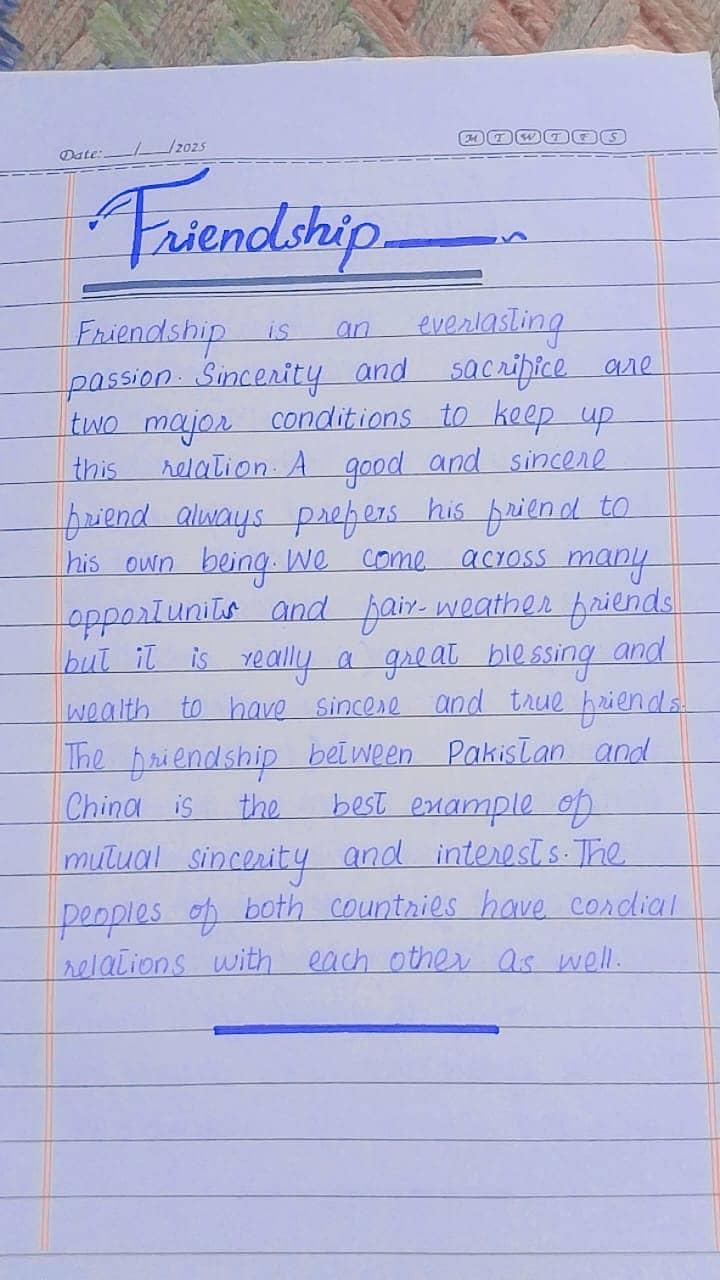 Date: __/__/2025
M T W T F S
Friendship
Friendship is an everlasting
passion. Sincerity and sacrifice are
two major conditions to keep up
this relation. A good and sincere
friend always prefers his friend to
his own being. We come across many
opportunits and fair-weather friends
but it is really a great blessing and
wealth to have sincere and true friends.
The friendship between Pakistan and
China is the best example of
mutual sincerity and interests. The
peoples of both countries have cordial
relations with each other as well.